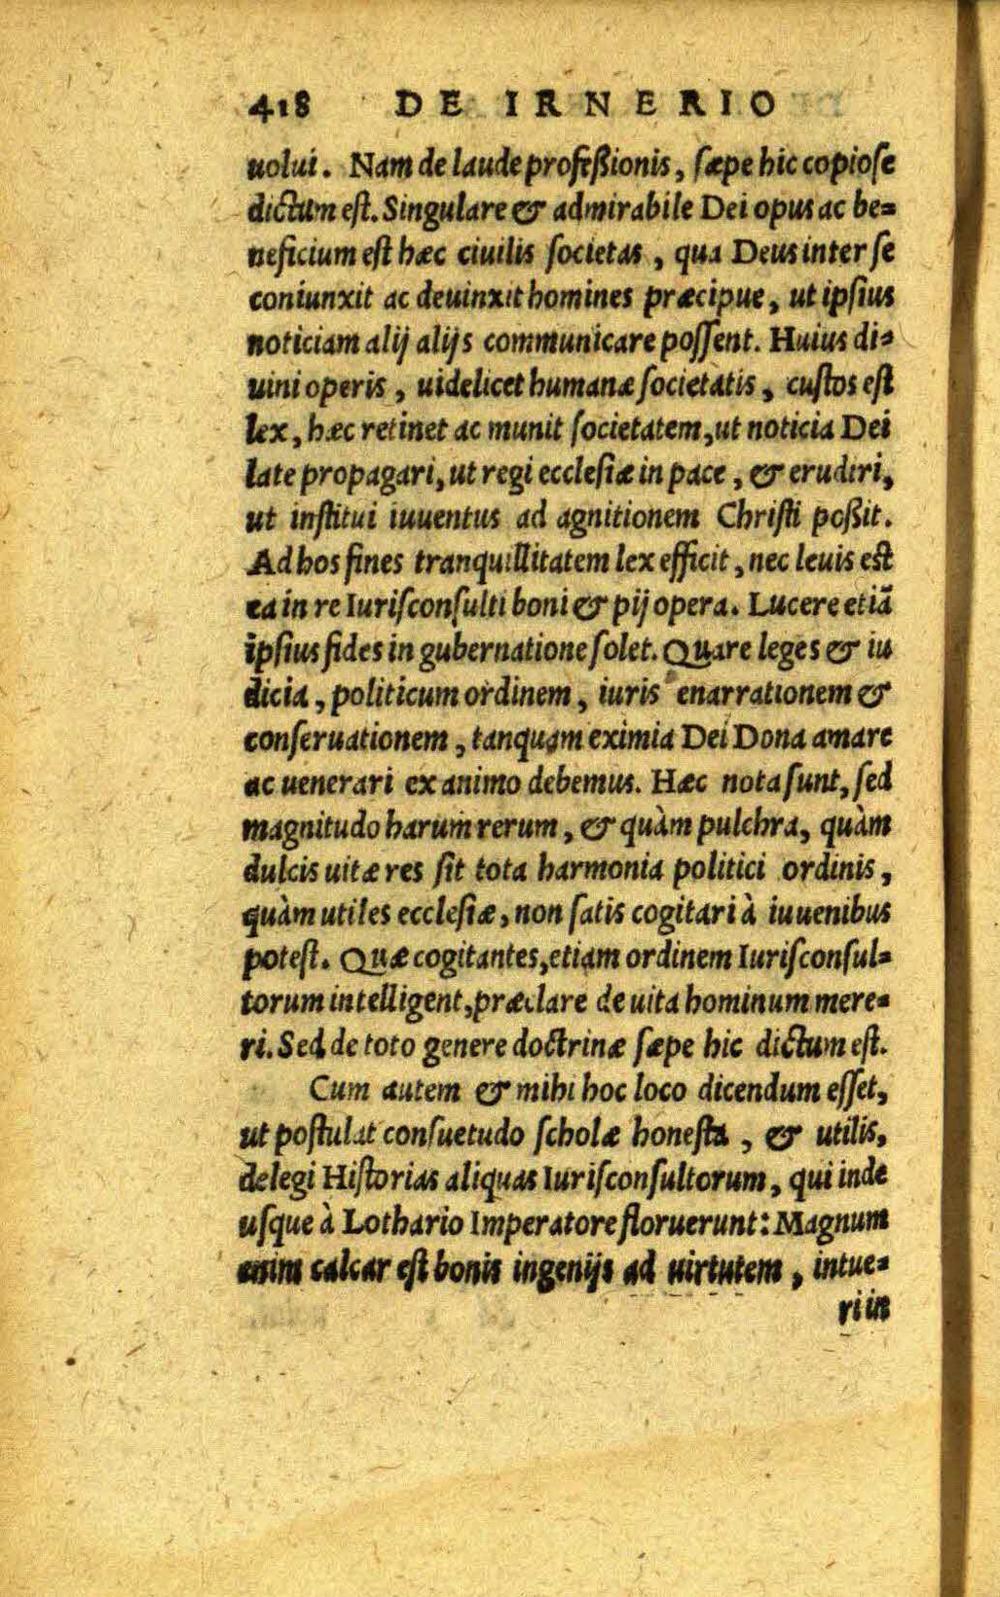 418 DE IRNERIO
uolui. Nam de laude profeßionis, sæpe hic copiose
dictum est. Singulare & admirabile Dei opus ac be=
neficium est hæc ciuilis societas, qua Deus inter se
coniunxit ac deuinxit homines præcipue, ut ipsius
noticiam alij alijs communicare possent. Huius di=
uini operis, uidelicet humanæ societatis, custos est
lex, hæc retinet ac munit societatem, ut noticia Dei
late propagari, ut regi ecclesiæ in pace, & erudiri,
ut institui iuuentus ad agnitionem Christi poßit.
Ad hos fines tranquillitatem lex efficit, nec leuis est
ea in re Iurisconsulti boni & pij opera. Lucere etiã
ipsius fides in gubernatione solet. Quare leges & iu
dicia, politicum ordinem, iuris enarrationem &
conseruationem, tanquam eximia Dei Dona amare
ac uenerari ex animo debemus. Hæc nota sunt, sed
magnitudo harum rerum, & quàm pulchra, quàm
dulcis uitæ res sit tota harmonia politici ordinis,
quàm utiles ecclesiæ, non satis cogitari à iuuenibus
potest. Quæ cogitantes, etiam ordinem Iurisconsul=
torum intelligent, præclare de uita hominum mere=
ri. Sed de toto genere doctrinæ sæpe hic dictum est.
Cum autem & mihi hoc loco dicendum esset,
ut postulat consuetudo scholæ honesta, & utilis,
delegi Historias aliquas Iurisconsultorum, qui inde
usque à Lothario Imperatore floruerunt: Magnum
enim calcar est bonis ingenijs ad uirtutem, intue=
ri in